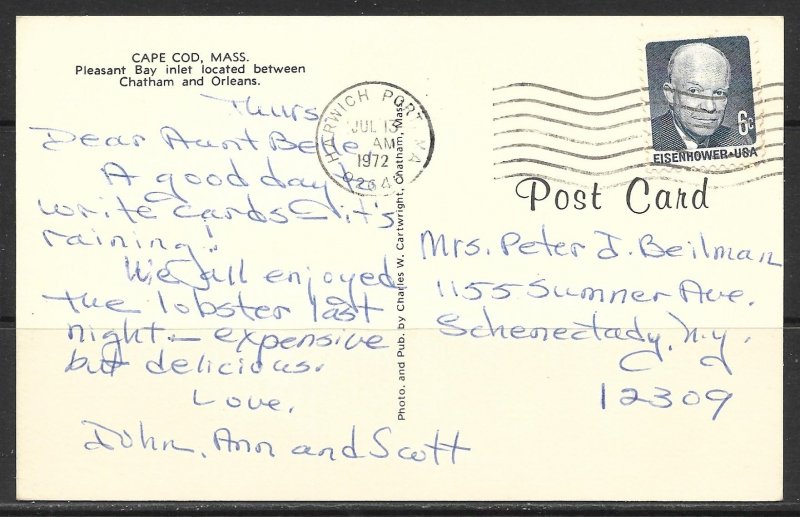 CAPE COD, MASS.
Pleasant Bay inlet located between
Chatham and Orleans.
Thurs.
Dear Aunt Belle,
A good day to
write cards - it's
raining!
We all enjoyed
the lobster last
night - expensive
but delicious.
Love,
John, Ann and Scott
Photo. and Pub. by Charles W. Cartwright, Chatham, Mass.
HARWICH PORT, MA
JUL 13
AM
1972
02646
6c
EISENHOWER·USA
Post Card
Mrs. Peter J. Beilman
1155 Sumner Ave.
Schenectady, N.Y.
12309